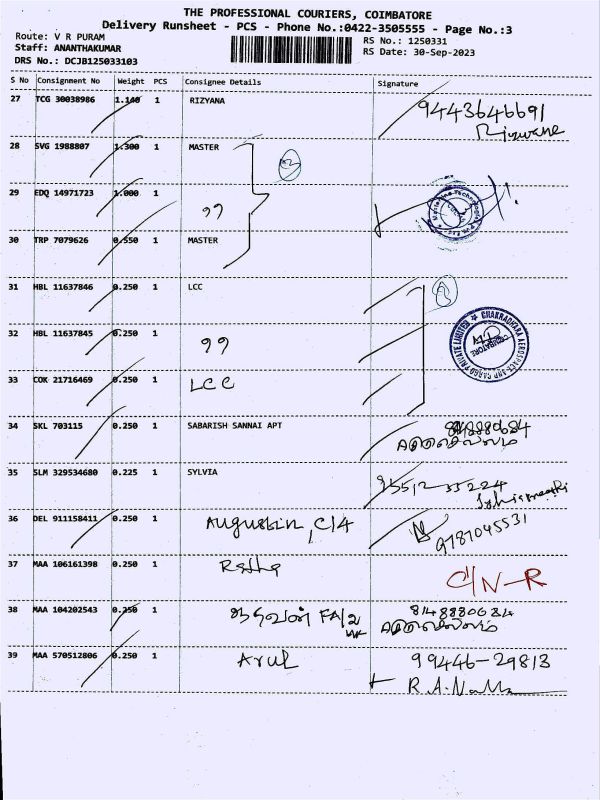 THE PROFESSIONAL COURIERS, COIMBATORE
Delivery Runsheet - PCS - Phone No.:0422-3505555 - Page No.:3
Route: V R PURAM
RS No.: 1250331
Staff: ANANTHAKUMAR
RS Date: 30-Sep-2023
DRS No.: DCJB125033103
S No Consignment No Weight PCS Consignee Details Signature
27 TCG 30038986 1.140 1 RIZYANA 9443646691
Rizwana
28 SVG 1988807 1.300 1 MASTER
29 EDQ 14971723 1.000 1 ,,
30 TRP 7079626 0.550 1 MASTER
31 HBL 11637846 0.250 1 LCC
32 HBL 11637845 0.250 1 ,,
CHAKRADHARA AEROSPACE AND CARGO PRIVATE LIMITED
COIMBATORE
33 COK 21716469 0.250 1 LCC
34 SKL 703115 0.250 1 SABARISH SANNAI APT
35 SLM 329534680 0.225 1 SYLVIA
36 DEL 911158411 0.250 1 Augustin, C14 9787045531
37 MAA 106161398 0.250 1 C/N-R
38 MAA 104202543 0.250 1 FA/2 8148880684
39 MAA 570512806 0.250 1 Arul 99446-29813